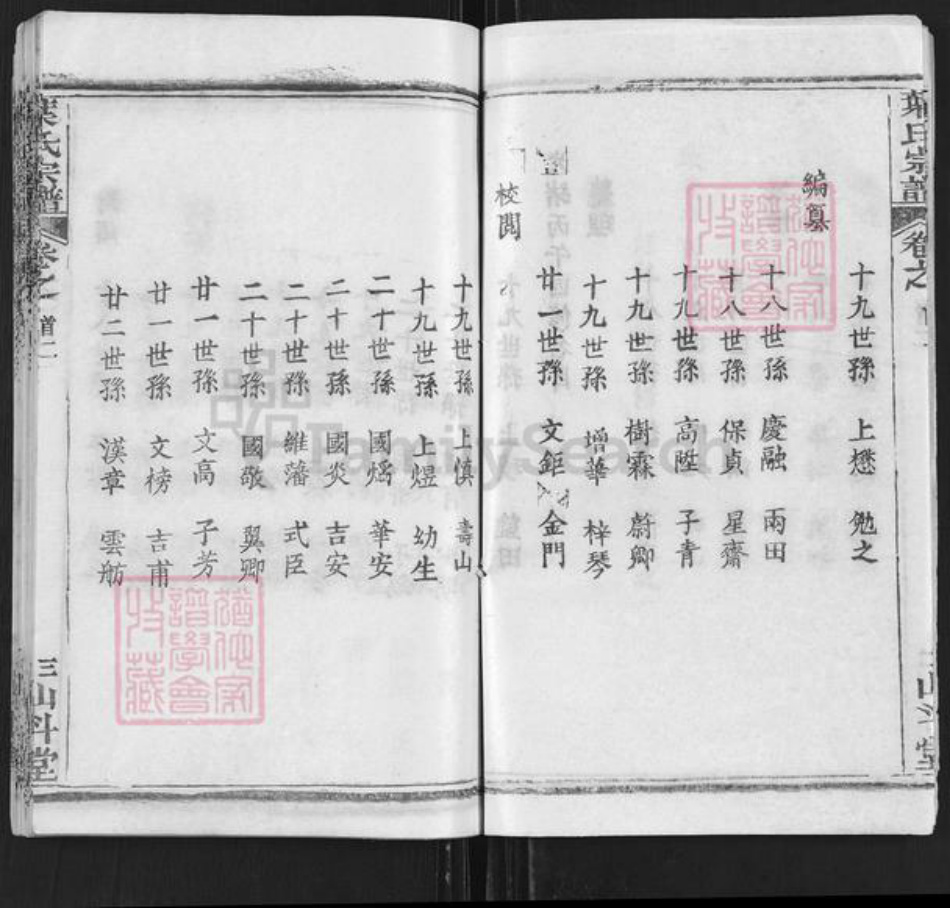 葉氏宗譜
卷之
十九世孫 上懋 勉之
編纂
十八世孫 慶融 雨田
十八世孫 保貞 星齋
十九世孫 高陞 子青
十九世孫 樹霖 蔚卿
十九世孫 增華 梓琴
廿一世孫 文鉅 金門
校閱
十九世孫 上慎 壽山
十九世孫 上煜 幼生
二十世孫 國燏 華安
二十世孫 國炎 吉安
二十世孫 維藩 式臣
二十世孫 國敬 翼卿
廿一世孫 文高 子芳
廿一世孫 文榜 吉甫
廿二世孫 漢章 雲舫
葉氏宗譜
卷之一
首二
三山斗堂
山斗堂
譜學會
收藏
譜學會
收藏
FamilySearch